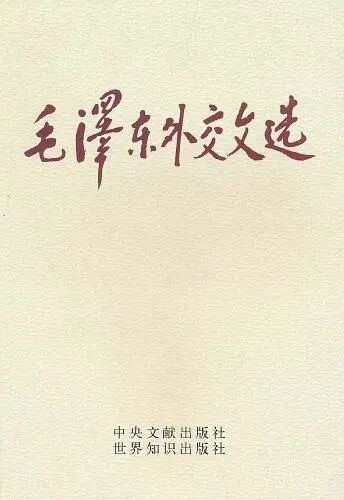 毛澤东外交文选
中央文献出版社
世界知识出版社